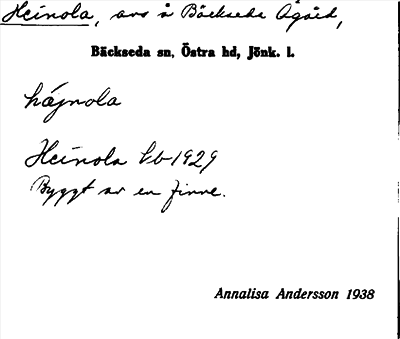 Heinola, avs å Bäckseda Ågård,
Bäckseda sn, Östra hd, Jönk. l.
hájnola
Heinola kb 1929
Byggt av en finne.
Annalisa Andersson 1938